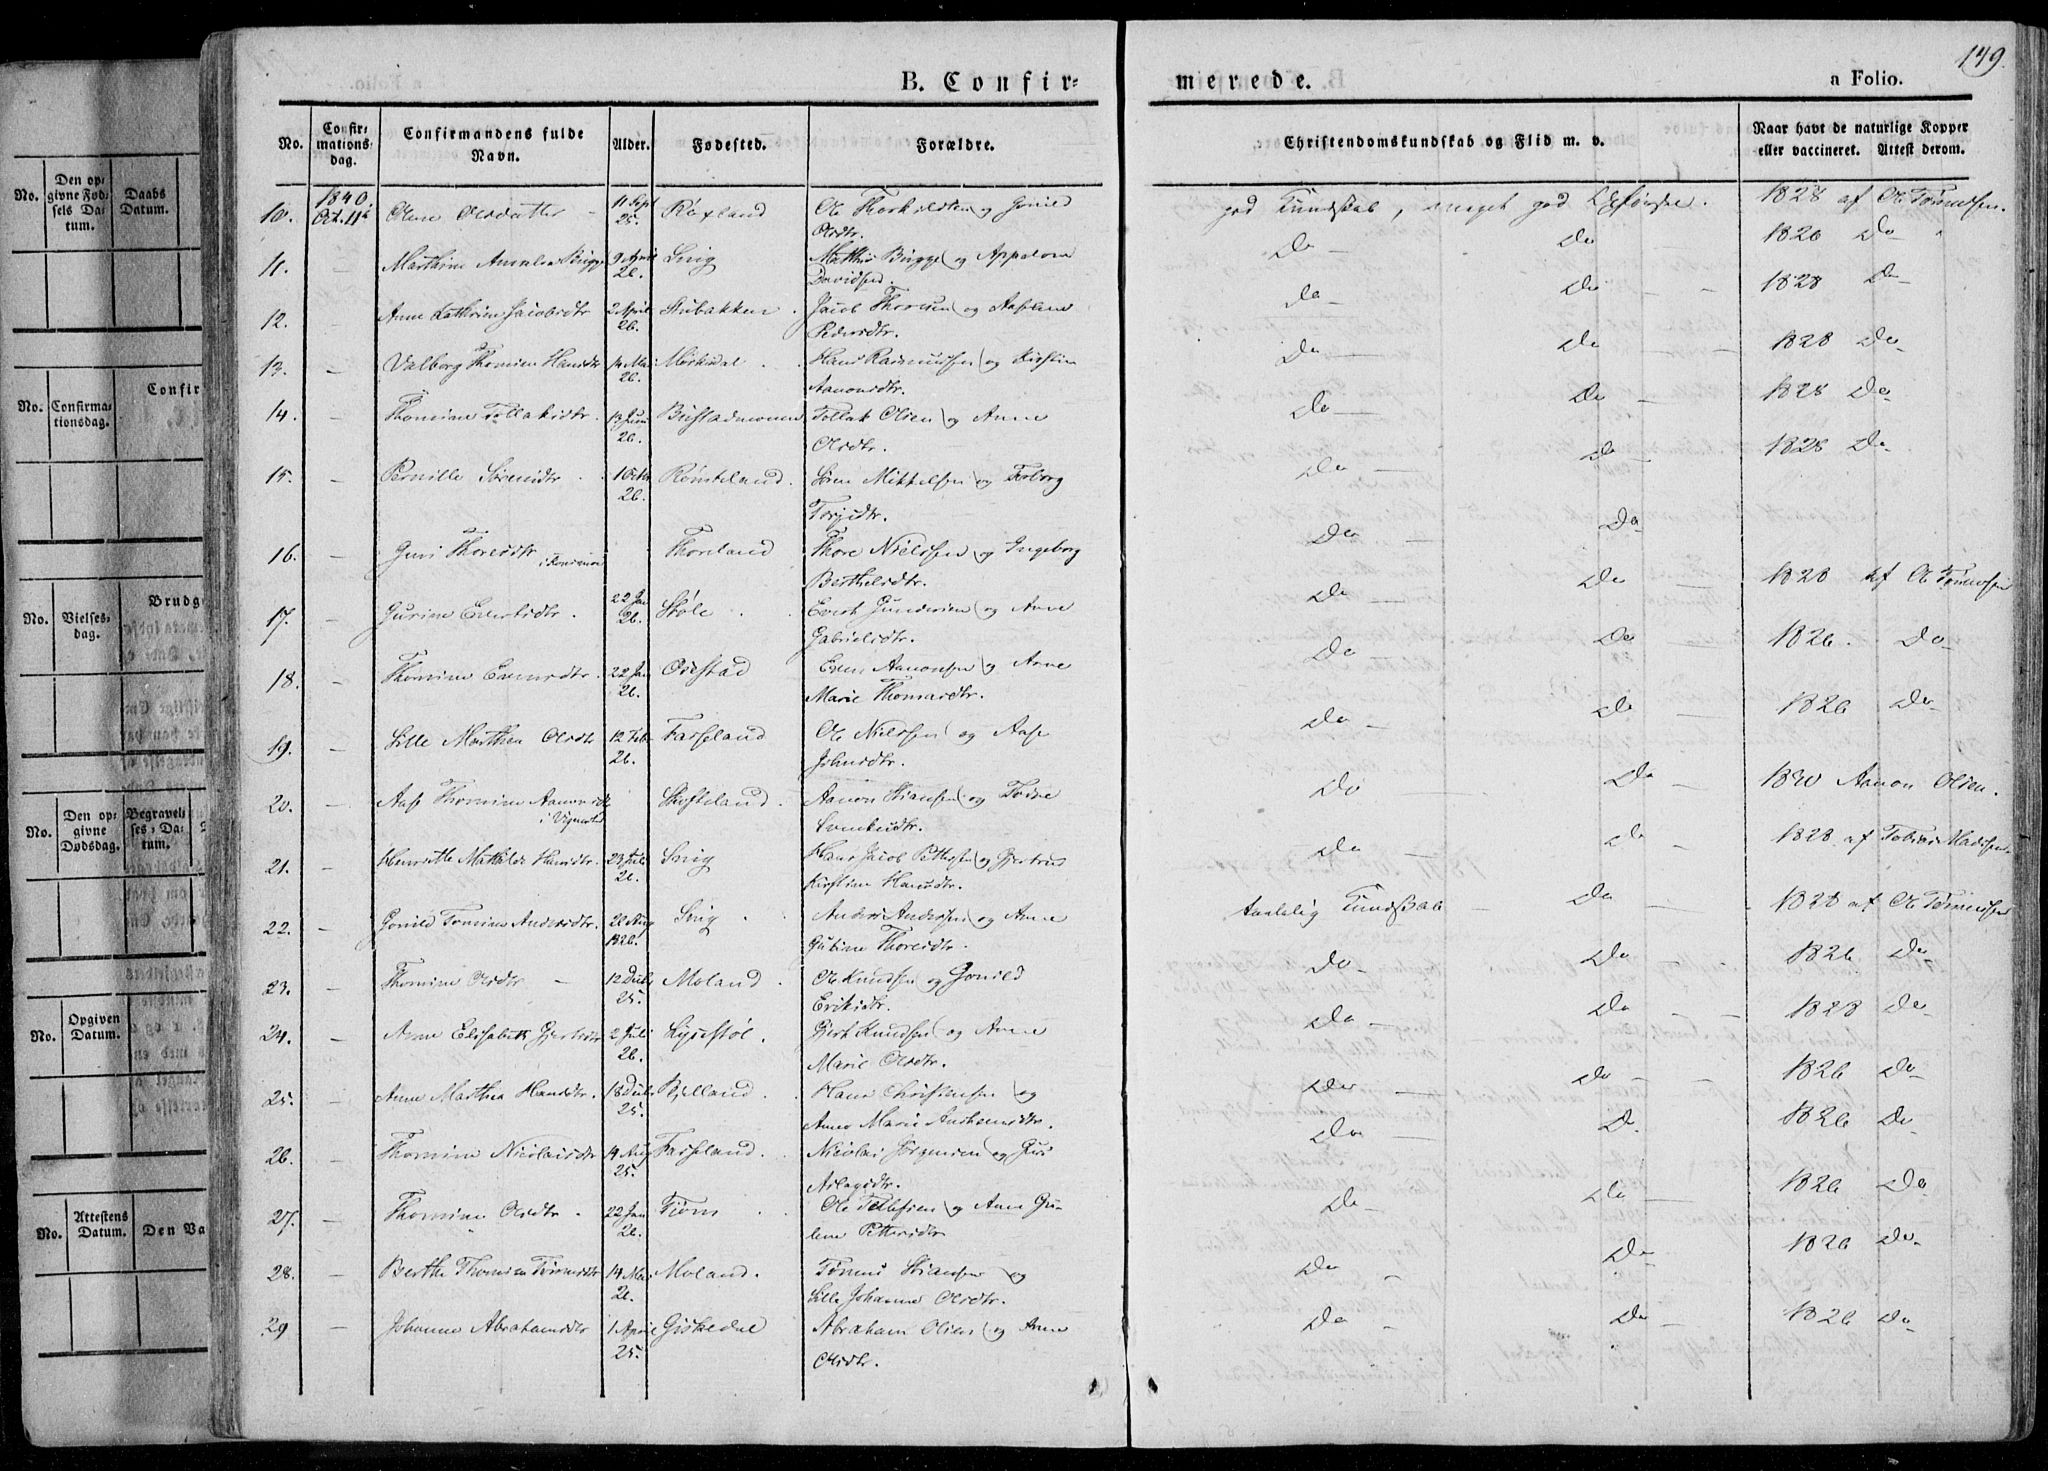 149.
B. Confir=
merede.
a Folio.
No.
Confir-
mations
dag.
Confirmandens fulde
Navn.
Alder.
Fødested.
Forældre.
Christendomskundskab og Flid m. v.
Naar havt de naturlige Kopper
eller vaccineret. Attest derom.
10. 1840 Oct. 11te Olsdatter 11 Sept 25. Røxland Ole Thorkildsen og Gonild Olsdtr. god Kundskab, meget god Opførsel. 1828 af Ole Tønnesen.
11. — Marthine Amalia Brigge 9 April 26. Snig Mathis Brigge og Appelone Davidsen. Do — Do — 1826 Do
12. — Anne Cathrine Jacobsdtr 2 April 26. Stubakken Jacob Thorsen og Aaslene Pedersdtr. Do — Do — 1828 Do
13. — Valborg Thomine Hansdtr 14 Mai 26. Mørkedal Hans Rasmussen og Kirstine Aanonsdtr. Do — Do — 1828 Do
14. — Thomine Tollaksdtr. 13 Juni 26. Bustadmoen Tollak Olsen og Anne Olsdtr. Do — Do — 1828 Do
15. — Pernille Sørensdtr 1 Octbr 26. Rønseland. Søren Mikkelsen og Torborg Torjusdtr. Do — Do 1828 Do
16. — Guri Thoresdtr Thorsland Thore Nielssen og Ingeborg Berthelsdtr. Do — Do
17. — Gurine Evertsdtr. 22 Jan 26. Støle Evert Gundersen og Anne Gabrielsdtr. Do — Do — 1828 af O Tønnesen
18. — Thomine Evensdtr. 22 Jan 26. Ovestad Even Aanonsen og Anne Marie Thomasdtr. Do Do 1826. Do
19. — Sille Marthea Olsdtr 12 Febr 26. Farseland Ole Nielssen og Aase Johnsdtr. Do — Do — 1826 Do
20. — Aase Thomine Aanonsdtr i Vigmostad Skofteland. Aanon Stiansen og Tobine Svenkesdtr. Do — Do 1840 Aanon Olsen.
21. — Henriette Mathilde Hansdtr. 23 Juli 26. Snig Hans Jacob Pettersen og Gjertrud Kirstine Hansdtr. Do — Do 1828 af Tobias Madssen
22. — Gonild Tomine Andersdtr. 20 Aug 1826. Snig Anders Andersen og Anne Gurine Thoresdtr. taalelig Kundskab — Do — 1828 af O Tønnesen
23. — Thomine Olsdtr — 12 Decbr 25. Moland. Ole Knudsen og Gonild Eriksdtr. Do — Do — 1826 Do
24. — Anne Elisabeth Gjertsdtr 2 Juli 26. Lysestøl. Gjert Knudsen og Anne Marie Olsdtr. Do — Do — 1828 Do
25. — Anne Marthea Hansdtr. 18 Decbr 25. Bjelland. Hans Christensen og Anne Marie Anstensdtr. Do — Do — 1826 Do
26. — Thomine Nicolaisdtr 14 Aug 25. Farseland. Nicolai Jørgensen og Guri Aslagsdtr. Do — Do 1826 Do
27. — Thomine Olsdtr 22 Jan 26. Tiøm Ole Tellefsen og Anne Gulene Pettersdtr Do — Do — 1826 Do
28. — Berthe Thomine Tønnesdtr 14 Mai 26. Moland. Tønnes Stiansen og Sille Johanne Olsdtr. Do — Do — 1826 Do
29 — Johanne Abrahamsdtr 1 April 25. Giskedal Abraham Olsen og Anne Olsdtr. Do — Do — 1826 Do
No.
Den op-
givne Fød-
sels Da-
tum.
Daabs
Datum.
Confir
No.
Confirma-
tionsdag.
Brudg
No.
Vielses-
dag.
No.
Den op-
givne
Dødsdag.
Begravel-
ses-Da-
tum.
No.
Opgiven
Datum.
No.
Attestens
Datum.
Den Va